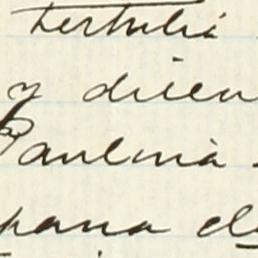 tertuli
y dicen
Paulina
pana el